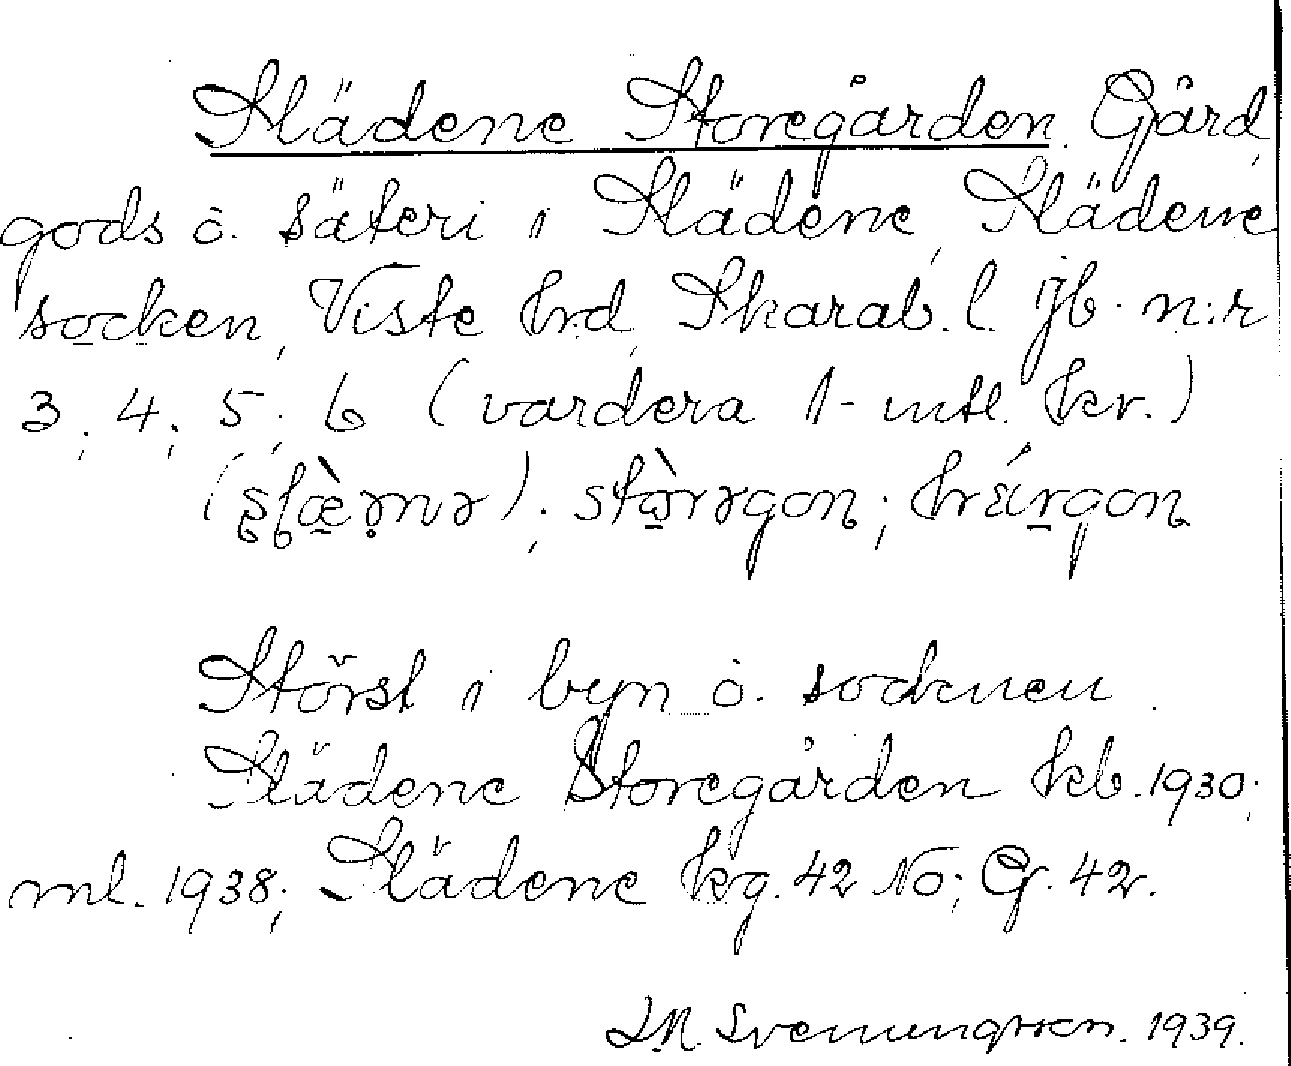 Slädene Storegården. Gård,
gods o. säteri i Slädene, Slädene
socken, Viste hrd, Skarab. l. Jb. n:r
3; 4; 5; 6 (vardera 1 mtl. kr.)
Störst i byn o. socknen.
Slädene Storegården kb. 1930;
ml. 1938; Slädene kg. 42 No; G. 42.
Svenungsson. 1939.